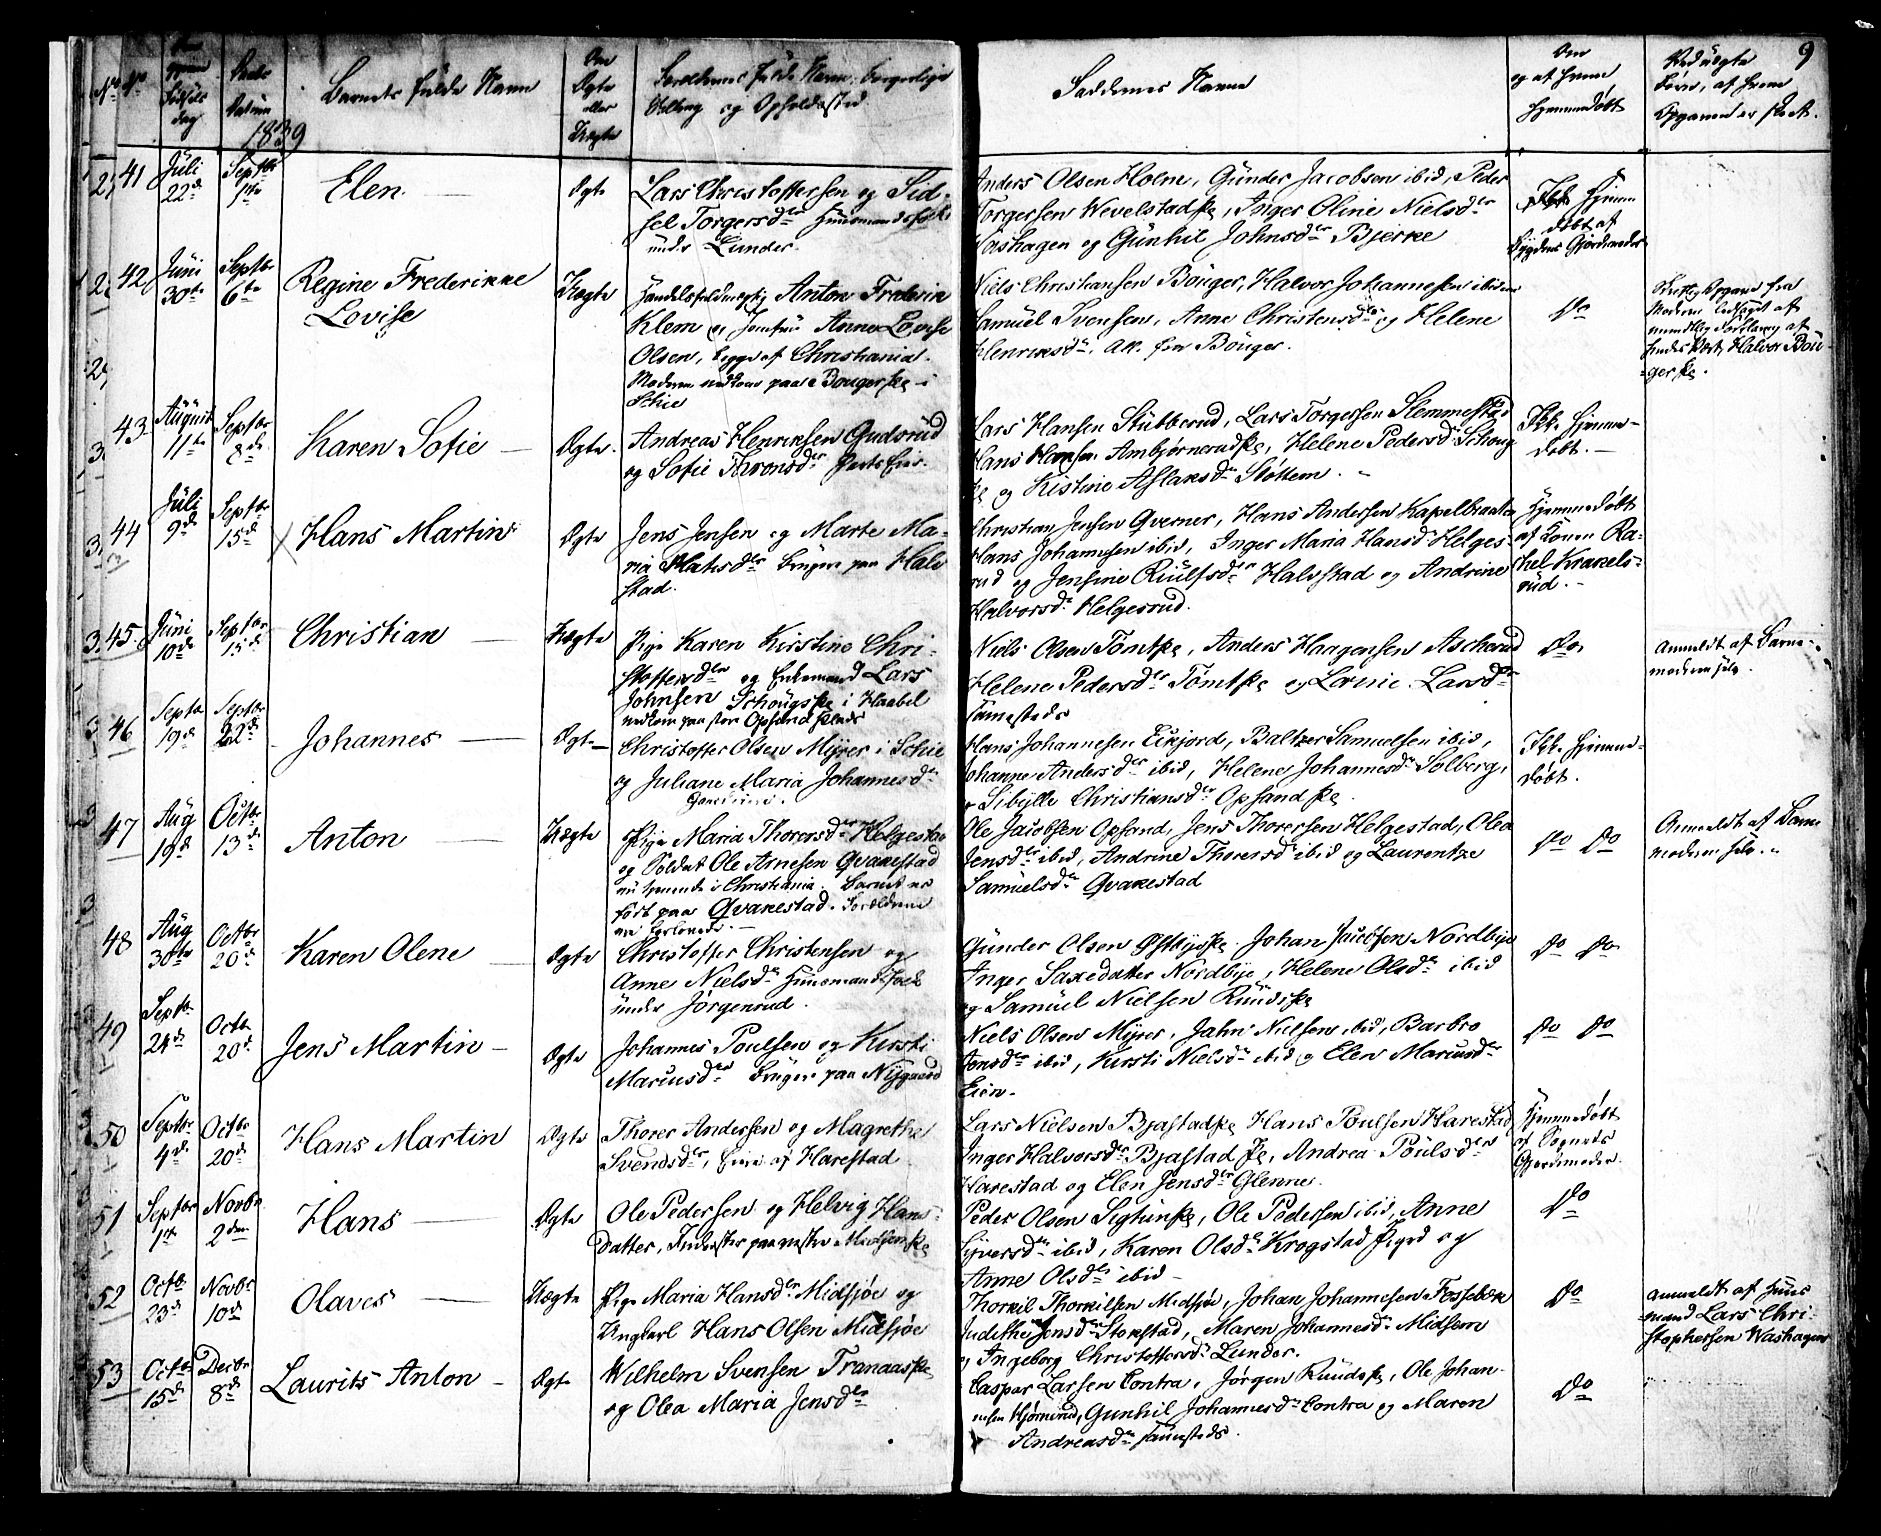 9
No. No.
Fødsels
dag
Daabs
Datum
1839
Barnets fulde Navn
Om
Ægte
eller
Uægte
Forældrenes fulde Navn, borgerlige
Stilling og Opholdssted
Faddernes Navne
Om
og af hvem
hjemmedøbt
Ved uægte
Børn, af hvem
Opgaven er skeet.
41
Juli
22de
Septbr
1ste
Elen
Ægte
Lars Christoffersen og Sid-
sel Torgersdtr Huusmandsfolk
under Lunder.
Anders Olsen Holm, Gunder Jacobsen ibid, Peder
Torgersen Wevelstadske, Inger Oline Nielsdtr
Washagen og Gunhil Johnsdtr Bjerke
Hjemme
døbt af
Bygdens Gjordemoder
42
Juni
30te
Septbr
6te
Regine Frederikke
Lovise
Uægte
Handelsfuldmægtig Anton Frederik
Klem og Jomfru Anne Lovise
Olsen, begge af Christiania.
Moderen nedkom paa Bougerske i
Schie
Niels Christiansen Bouger, Halvor Johannesen ibidem
Samuel Svensen, Anne Christensdtr og Helene
Henriksdtr, All. fra Bouger.
Do
Skriftlig Opgave fra
Moderen ledsaget af
mundtlig Forklaring af
hendes Vært, Halvor Bou-
gerske.
43
August
11te
Septbr
8de
Karen Sofie
Ægte.
Andreas Henriksen Gudsrud
og Sofie Thronsdtr
Lars Hansen Stubberud, Lars Torgersen Slemmestad
Hans Hansen Ambjørnerudske, Helene Pedersd. Schoug
ske og Kistine Aslaksdtr Støttem.
Ikke hjemme-
døbt.
44
Juli
9de
Septbr
15de
Hans Martin
Ægte
Jens Jensen og Marte Ma-
ria Matisdtr Bruger paa Halv
stad.
Christian Jensen Qverner, Hans Andersen Kapelbraaten
Hans Johannesen ibid, Inger Maria Hansd. Helges-
rud og Jensine Ruulfsdtr Halvstad og Andrine
Halvorsdtr Helgesrud.
Hjemmedøbt
af Konen Ra-
chel Krakels-
rud.
45
Juni
10de
Septbr
15de
Christian
Uægte
Pige Karen Kirstine Chri-
stoffersdtr og Enkemand Lars
Johnsen Schougske i Haabel
nedkom paa store Opsand Plads
Niels Olsen Tomtske, Anders Haagensen Ascherud
Helene Pedersdtr Tomtske og Lovise Larsdtr
sammesteds
Do
Anmeldt af Barne-
moderen selv.
46
Septbr
19de
Septbr
22de
Johannes
Ægte
Christoffer Olsen Myrer i Schie
og Juliane Maria Johannesdtr
Hans Johannesen Eikjord, Baltzer Samuelsen ibid,
Johanne Andersdtr ibid, Helene Johannesdtr Solberg,
og Sibylle Christiansdtr Opsandske.
Ikke hjemme-
døbt.
47
Aug
19de
Octbr
13de
Anton
Uægte
Pige Maria Thorersdtr Helgestad
og Soldat Ole Arnesen Qvakestad
nu tjenende i Christiania. Barnet er
født paa Qvakestad. Forældrene
ere forlovede.
Ole Jacobsen Opsand, Jens Thorersen Helgestad, Olea
Jensdtr ibid, Andrine Thorersd. ibid og Laurentze
Samuelsdtr Qvakestad
Do Do
Anmeldt af Barne
moderen selv.
48
Aug
30te
Octbr
20de
Karen Olene
Ægte
Christoffer Christensen og
Anne Nielsdtr Huusmandsfolk
under Jørgenrud.
Gunder Olsen Østbyeske, Johan Jacobsen Nordbye
Inger Saxedatter Nordbye, Helene Olsdtr ibid
og Samuel Nielsen Ruudske
Do Do
49
Septbr
24de
Octbr
20de
Jens Martin
Ægte
Johannes Poulsen og Kirsti
Marcusdtr Bruger paa Nygaard
Niels Olsen Myrer, John Nielsen ibid, Barbro
Jensdtr ibid, Kirsti Nielsdtr ibid og Elen Marcusdtr
Eien.
Do Do
50
Septbr
4de
Octbr
20de
Hans Martin
Ægte
Thorer Andersen og Magrethe
Svendsdtr, Eier af Harestad
Lars Nielsen Bjastadske Hans Poulsen Harestad
Inger Halvorsdtr Bjastadske, Andrea Poulsdtr
Harestad og Elen Jensdtr Glenne.
Hjemmedøbt
af Sognets
Gjordemoder.
51
Septbr
1ste
Novbr
2den
Hans
Ægte
Ole Pedersen og Helvig Hans-
datter, Inderster paa nedre Midsjøeske
Peder Olsen Sigtunske, Ole Pedersen ibid, Anne
Syversdtr ibid, Karen Olsdtr Krogstad Pige og
Anne Olsdtr ibid
Do
52
Octb
23de
Novbr
10de
Olaves
Uægte
Pige Maria Hansdtr Midsjøe og
Ungkarl Hans Olsen Midsjøe
Thorkil Thorkilsen Midsjøe, Johan Johannesen Fossebæk
Judithe Jensdtr Storestad, Maren Johannesdtr Midsem
og Ingeborg Christoffersdtr Lunder.
Do
Anmeldt af Huus
mand Lars Chri-
stophersen Washagen
53
Octb
15de
Decbr
8de
Laurits Anton
Ægte
Wilhelm Svensen Tranaaske
og Olea Maria Jensdtr
Caspar Larsen Contra, Jørgen Ruudske, Ole Johan-
nesen Hjørnerud, Gunhil Johannesdtr Contra og Maren
Andreasdtr sammesteds.
Do